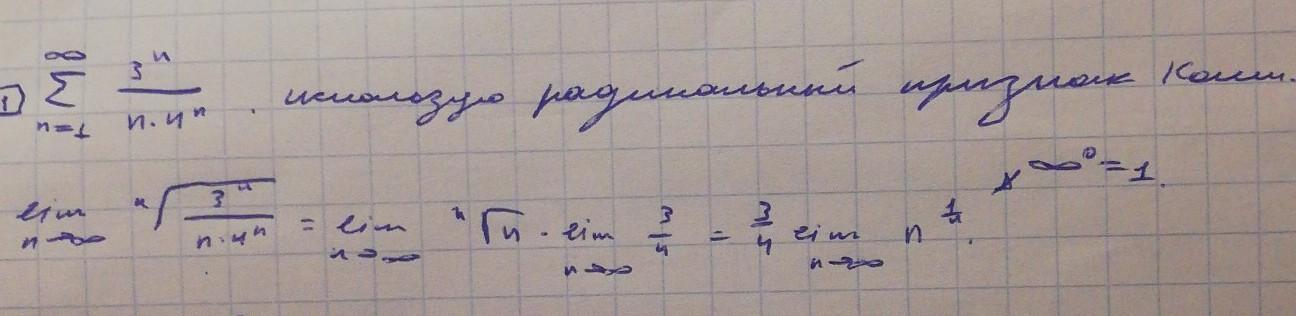 1) ∑_{n=1}^{∞} 3^n / (n·4^n). использую радикальный признак Коши.
lim_{n→∞} ⁿ√(3^n / (n·4^n)) = lim_{n→∞} ⁿ√n · lim_{n→∞} 3/4 = 3/4 lim_{n→∞} n^{1/n}. ↗ ∞^0 = 1.